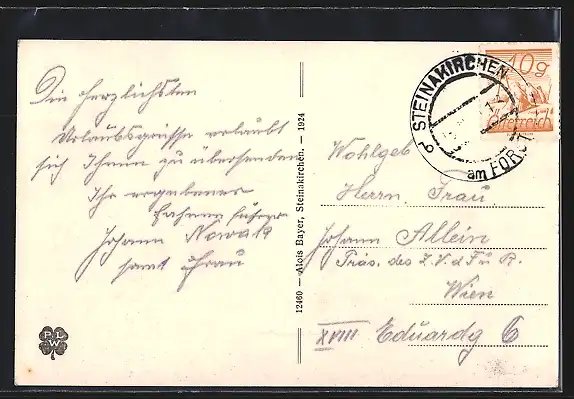 Die herzlichsten
Urlaubsgrüsse erlaubt
sich Ihnen zu übersenden
Ihr ergebener
Fahnenführer
Johann Nowak
samt Frau
12460 – Alois Bayer, Steinakirchen. – 1924
P. L.
W.
STEINAKIRCHEN
am FORST
10g
Österreich
Wohlgeb
Herrn, Frau,
Johann Allein
Präs. des Z. V. d F u R.
Wien
XVIII Eduardg 6